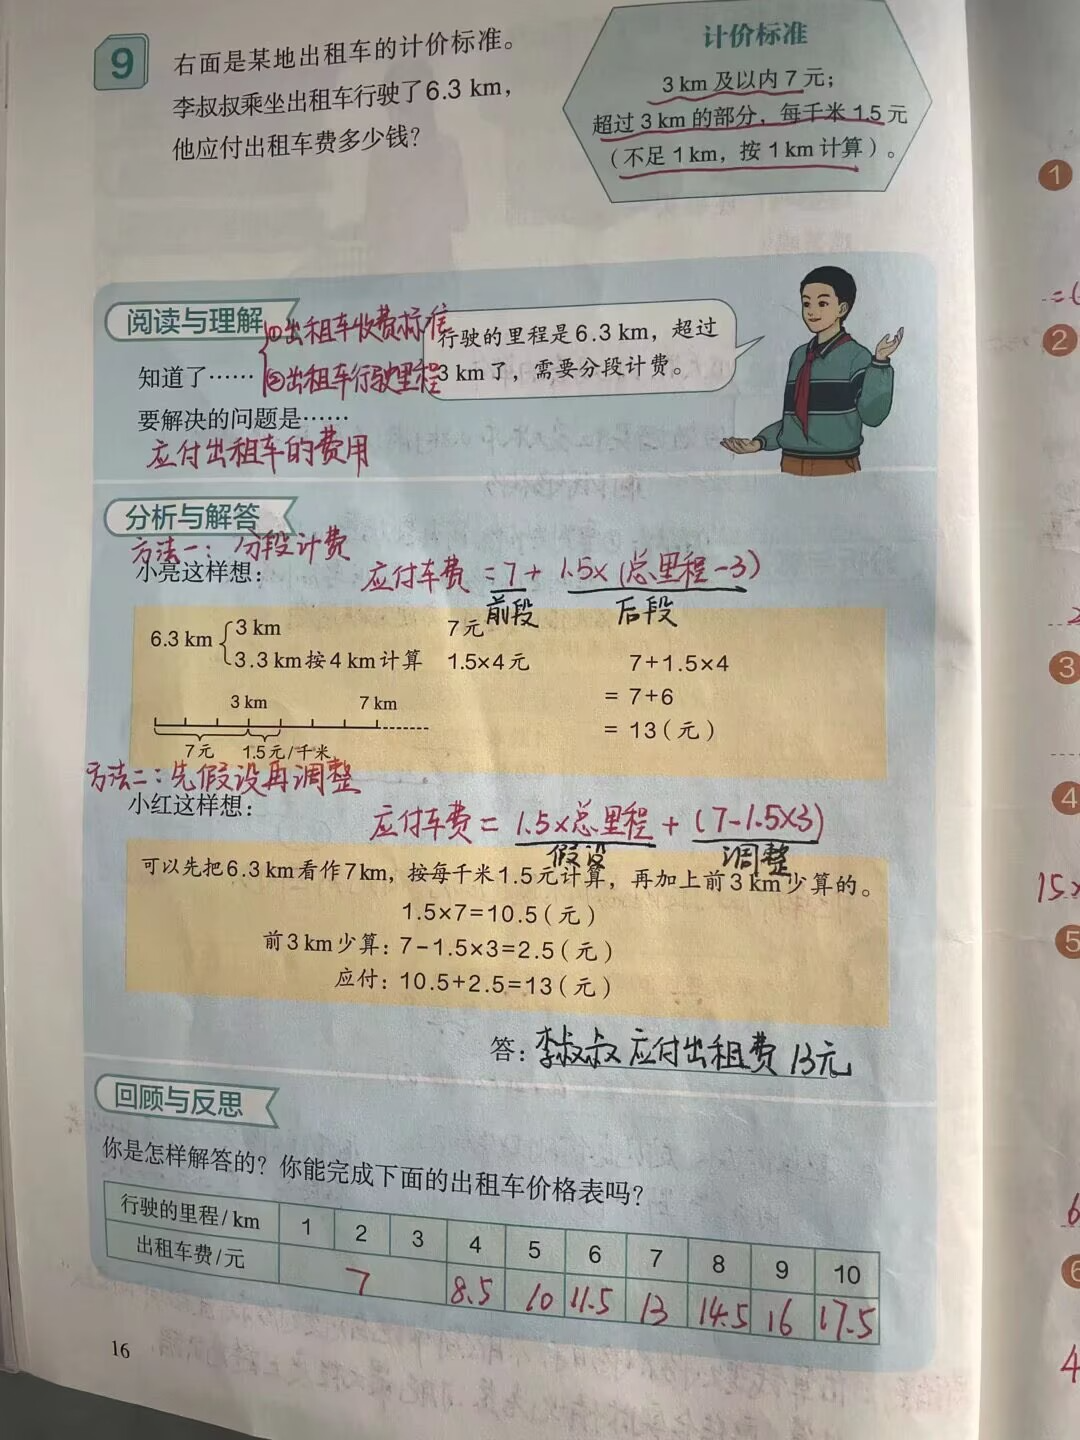 9
右面是某地出租车的计价标准。
李叔叔乘坐出租车行驶了6.3 km，
他应付出租车费多少钱？
计价标准
3 km 及以内 7 元；
超过 3 km 的部分，每千米 1.5 元
（不足 1 km，按 1 km 计算）。
阅读与理解
知道了……
①出租车收费标准
②出租车行驶里程
行驶的里程是6.3 km，超过
3 km了，需要分段计费。
要解决的问题是……
应付出租车的费用
分析与解答
方法一：分段计费
小亮这样想：
应付车费 = 7 + 1.5×(总里程-3)
前段 后段
6.3 km
3 km 7元
3.3 km按4 km计算 1.5×4元
7+1.5×4
= 7+6
= 13（元）
3 km 7 km
7元 1.5元/千米
方法二：先假设再调整
小红这样想：
应付车费 = 1.5×总里程 + (7-1.5×3)
假设 调整
可以先把6.3 km看作7 km，按每千米1.5元计算，再加上前3 km少算的。
1.5×7=10.5（元）
前3 km少算：7-1.5×3=2.5（元）
应付：10.5+2.5=13（元）
答：李叔叔应付出租费13元
回顾与反思
你是怎样解答的？你能完成下面的出租车价格表吗？
行驶的里程/km 1 2 3 4 5 6 7 8 9 10
出租车费/元 7 8.5 10 11.5 13 14.5 16 17.5
16
1
=(
2
3
4
15×
5
6
6
4